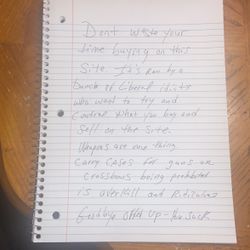 Don't waste your
time buying on this
Site. It's Run by a
Bunch of Liberal idiots
who want to try and
Control what you buy and
Sell on the Site.
Weapons are one thing.
Carry Cases for guns or
Crossbows being prohibited
is overkill and Ridiculous
Goodbye Offer Up - You Suck.